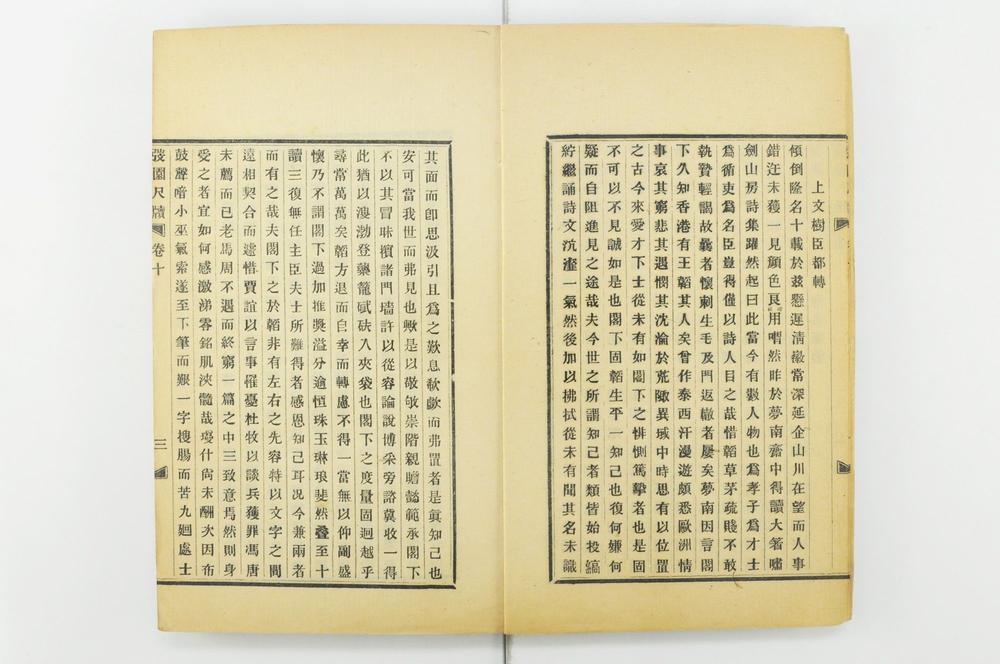 上文樹臣都轉
傾倒隆名十載於茲懸遲清徽常深延企山川在望而人事
錯迕未獲一見顏色良用喟然昨於夢南齋中得讀大箸嘯
劍山房詩集躍然起曰此當今有數人物也為孝子為才士
為循吏為名臣豈得僅以詩人目之哉惜韜草茅疏賤不敢
執贄輕謁故曩者懷刺生毛及門返轍者屢矣夢南因言閣
下久知香港有王韜其人矣曾作泰西汗漫遊頗悉歐洲情
事哀其窮悲其遇憫其沈淪於荒陬異域中時思有以位置
之古今來愛才下士從未有如閣下之悱惻篤摯者也是固
不可以不見誠如是也閣下固韜生平一知己也復何嫌何
疑而自阻進見之途哉夫今世之所謂知己者類皆始投縞
紵繼誦詩文沆瀣一氣然後加以拂拭從未有聞其名未識
其面而卽思汲引且為之歎息欷歔而弗置者是眞知己也
安可當我世而弗見也歟是以敬敂崇階親瞻懿範承閣下
不以其冒昧擯諸門墻許以從容論說博采旁諮冀收一得
此猶以溲勃登藥籠碔砆入夾袋也閣下之度量固迥越乎
尋常萬萬矣韜方退而自幸而轉慮不得一當無以仰副盛
懷乃不謂閣下過加推獎溢分逾恒珠玉琳琅斐然疊至十
讀三復無任主臣夫士所難得者感恩知己耳况今兼兩者
而有之哉夫閣下之於韜非有左右之先容特以文字之間
遠相契合而遽惜賈誼以言事罹憂杜牧以談兵獲罪馮唐
未薦而已老馬周不遇而終窮一篇之中三致意焉然則身
受之者宜如何感激涕零銘肌浹髓哉瓊什尙未酬次因布
鼓聲喑小巫氣索遂至下筆而艱一字搜腸而苦九迴處士
弢園尺牘 卷十 三